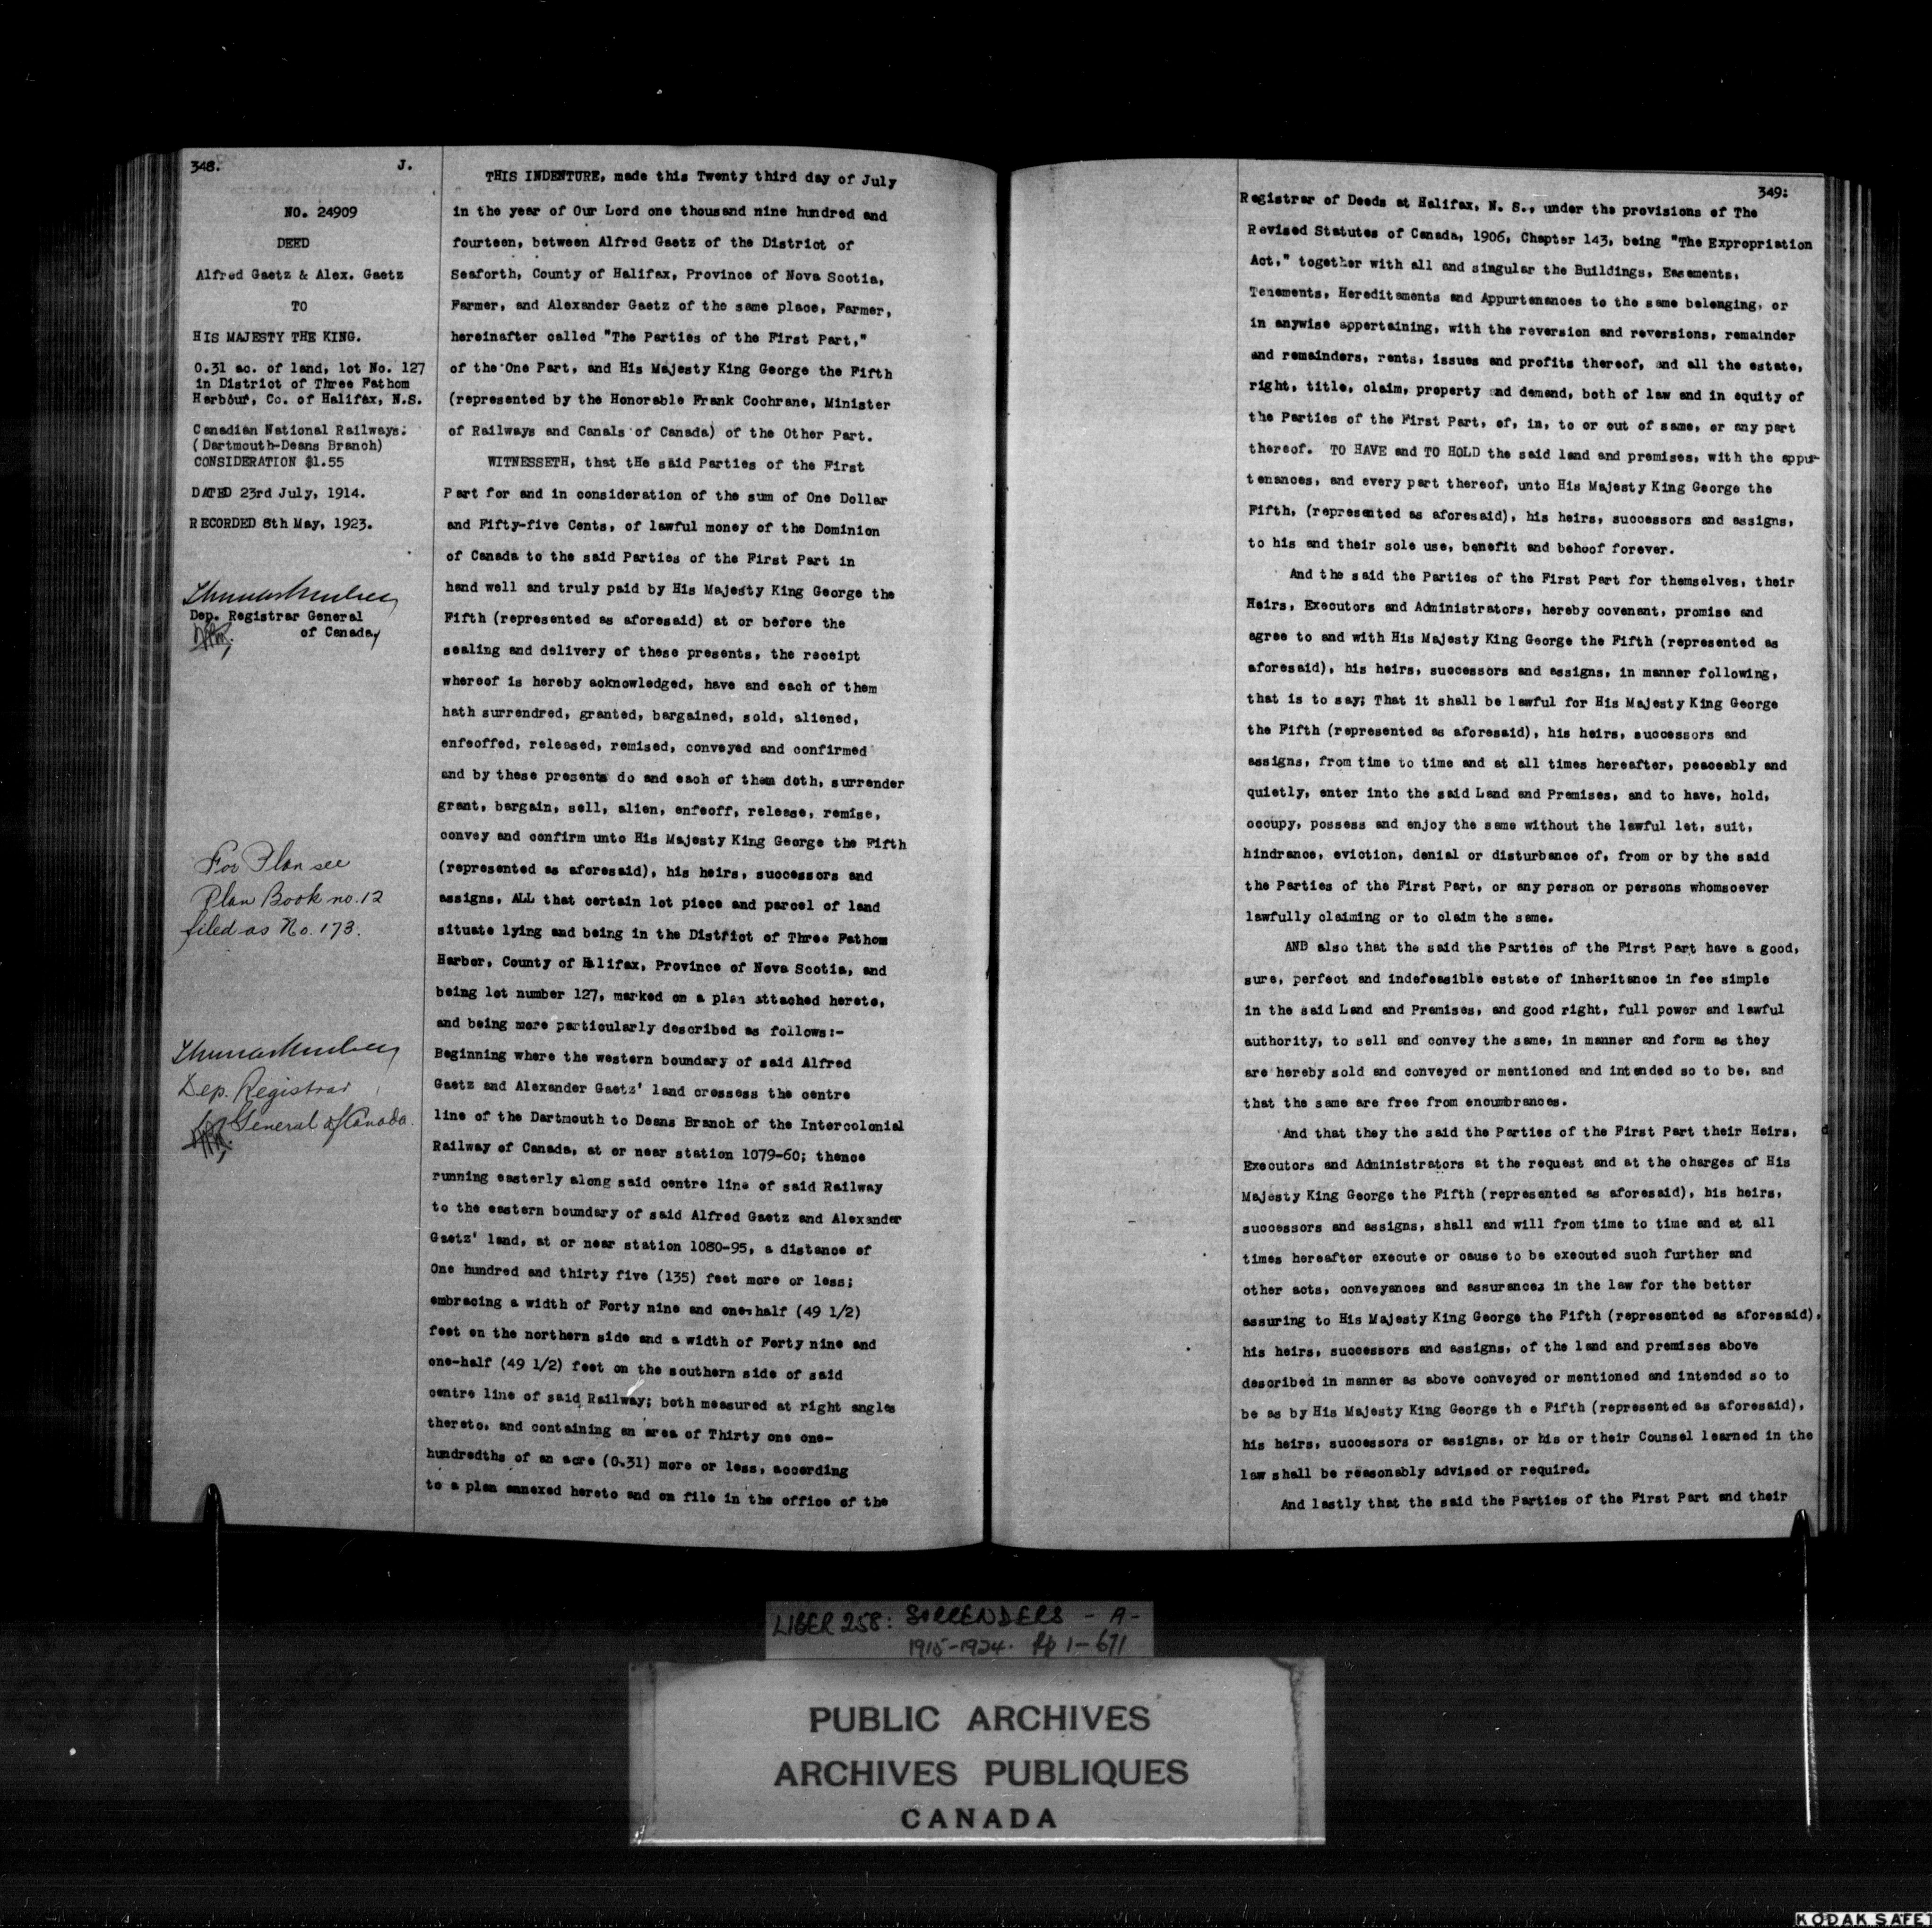 348. J.
NO. 24909
DEED
Alfred Gaetz & Alex. Gaetz
TO
HIS MAJESTY THE KING.
0.31 ac. of land, lot No. 127
in District of Three Fathom
Harbour, Co. of Halifax, N.S.
Canadian National Railways.
(Dartmouth-Deans Branch)
CONSIDERATION $1.55
DATED 23rd July, 1914.
RECORDED 8th May, 1923.
Dep. Registrar General
of Canada
For Plan see
Plan Book no. 12
filed as No. 173.
Dep. Registrar
General of Canada.
THIS INDENTURE, made this Twenty third day of July
in the year of Our Lord one thousand nine hundred and
fourteen, between Alfred Gaetz of the District of
Seaforth, County of Halifax, Province of Nova Scotia,
Farmer, and Alexander Gaetz of the same place, Farmer,
hereinafter called "The Parties of the First Part,"
of the One Part, and His Majesty King George the Fifth
(represented by the Honorable Frank Cochrane, Minister
of Railways and Canals of Canada) of the Other Part.
WITNESSETH, that tHe said Parties of the First
Part for and in consideration of the sum of One Dollar
and Fifty-five Cents, of lawful money of the Dominion
of Canada to the said Parties of the First Part in
hand well and truly paid by His Majesty King George the
Fifth (represented as aforesaid) at or before the
sealing and delivery of these presents, the receipt
whereof is hereby acknowledged, have and each of them
hath surrendred, granted, bargained, sold, aliened,
enfeoffed, released, remised, conveyed and confirmed
and by these presents do and each of them doth, surrender
grant, bargain, sell, alien, enfeoff, release, remise,
convey and confirm unto His Majesty King George the Fifth
(represented as aforesaid), his heirs, successors and
assigns, ALL that certain lot piece and parcel of land
situate lying and being in the District of Three Fathom
Harbor, County of Halifax, Province of Nova Scotia, and
being lot number 127, marked on a plan attached hereto,
and being more particularly described as follows:-
Beginning where the western boundary of said Alfred
Gaetz and Alexander Gaetz' land crossess the centre
line of the Dartmouth to Deans Branch of the Intercolonial
Railway of Canada, at or near station 1079-60; thence
running easterly along said centre line of said Railway
to the eastern boundary of said Alfred Gaetz and Alexander
Gaetz' land, at or near station 1080-95, a distance of
One hundred and thirty five (135) feet more or less;
embracing a width of Forty nine and one-half (49 1/2)
feet on the northern side and a width of Forty nine and
one-half (49 1/2) feet on the southern side of said
centre line of said Railway; both measured at right angles
thereto, and containing an area of Thirty one one-
hundredths of an acre (0.31) more or less, according
to a plan annexed hereto and on file in the office of the
349:
Registrar of Deeds at Halifax, N. S., under the provisions of The
Revised Statutes of Canada, 1906, Chapter 143, being "The Expropriation
Act," together with all and singular the Buildings, Easements,
Tenements, Hereditaments and Appurtenances to the same belonging, or
in anywise appertaining, with the reversion and reversions, remainder
and remainders, rents, issues and profits thereof, and all the estate,
right, title, claim, property and demand, both of law and in equity of
the Parties of the First Part, of, in, to or out of same, or any part
thereof. TO HAVE and TO HOLD the said land and premises, with the appur-
tenances, and every part thereof, unto His Majesty King George the
Fifth, (represented as aforesaid), his heirs, successors and assigns,
to his and their sole use, benefit and behoof forever.
And the said the Parties of the First Part for themselves, their
Heirs, Executors and Administrators, hereby covenant, promise and
agree to and with His Majesty King George the Fifth (represented as
aforesaid), his heirs, successors and assigns, in manner following,
that is to say; That it shall be lawful for His Majesty King George
the Fifth (represented as aforesaid), his heirs, successors and
assigns, from time to time and at all times hereafter, peaceably and
quietly, enter into the said Land and Premises, and to have, hold,
occupy, possess and enjoy the same without the lawful let, suit,
hindrance, eviction, denial or disturbance of, from or by the said
the Parties of the First Part, or any person or persons whomsoever
lawfully claiming or to claim the same.
AND also that the said the Parties of the First Part have a good,
sure, perfect and indefeasible estate of inheritance in fee simple
in the said Land and Premises, and good right, full power and lawful
authority, to sell and convey the same, in manner and form as they
are hereby sold and conveyed or mentioned and intended so to be, and
that the same are free from encumbrances.
And that they the said the Parties of the First Part their Heirs,
Executors and Administrators at the request and at the charges of His
Majesty King George the Fifth (represented as aforesaid), his heirs,
successors and assigns, shall and will from time to time and at all
times hereafter execute or cause to be executed such further and
other acts, conveyances and assurances in the law for the better
assuring to His Majesty King George the Fifth (represented as aforesaid),
his heirs, successors and assigns, of the land and premises above
described in manner as above conveyed or mentioned and intended so to
be as by His Majesty King George th e Fifth (represented as aforesaid),
his heirs, successors or assigns, or his or their Counsel learned in the
law shall be reasonably advised or required.
And lastly that the said the Parties of the First Part and their
LIBER 258: SURRENDERS - A -
1915-1924. pp 1-671
PUBLIC ARCHIVES
ARCHIVES PUBLIQUES
CANADA
KODAK SAFET